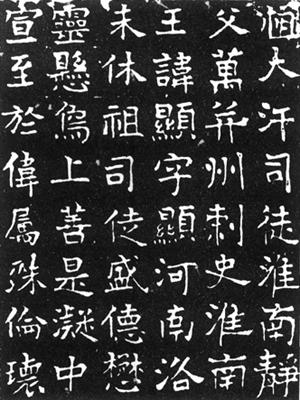 大汗司徒淮南靜
父萬并州刺史淮南
王諱顯字顯河南洛
未休祖司徒盛德懋
靈懸上善是凝中
宣至於偉屬殊倫瓌